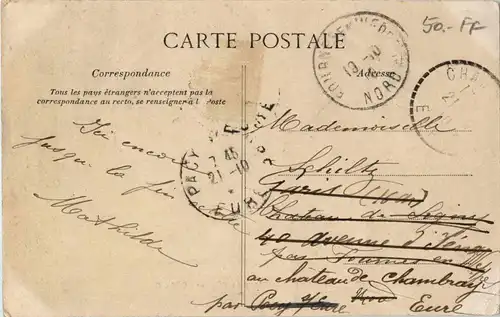 50.- FF
CARTE POSTALE
Correspondance
Adresse
Tous les pays étrangers n'acceptent pas la
correspondance au recto, se renseigner à la Poste
NORD
19 -10
CHA
E
PACY
EURE
7 45
21 -10
EURE
Ici encore
jusqu'à la fin
Mathilde
Mademoiselle
Schiltz
Paris
Château de
40 avenue d'Iéna
par Fournes en
au château de Chambray
par Pacy s/Eure
Eure